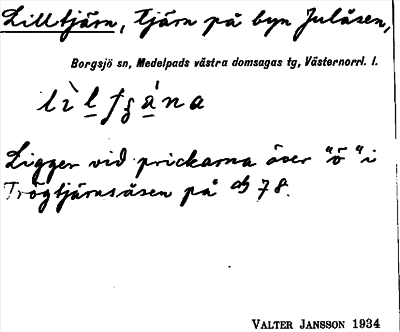 Lilltjärn, tjärn på byn Julåsen,
Borgsjö sn, Medelpads västra domsagas tg, Västernorrl. l.
Ligger vid prickarna över "ö" i
Trögtjärnsåsen på ab 78.
VALTER JANSSON 1934